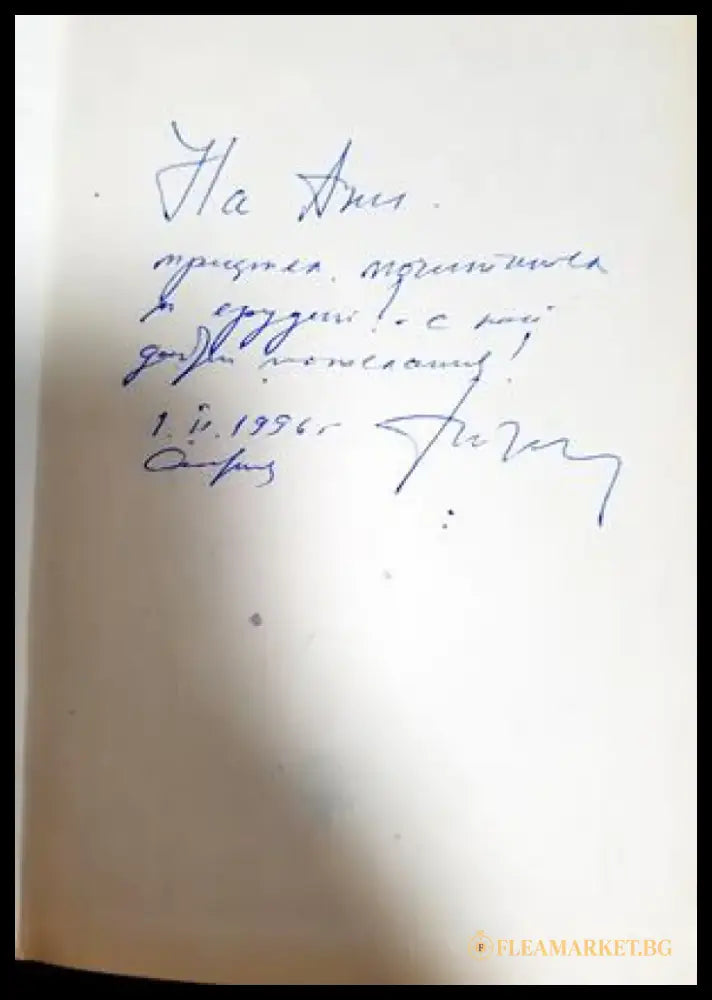 На Ани.
приятел, почитател
и ерудит! - с най
добри пожелания!
1.II.1996 г
София
FLEAMARKET.BG